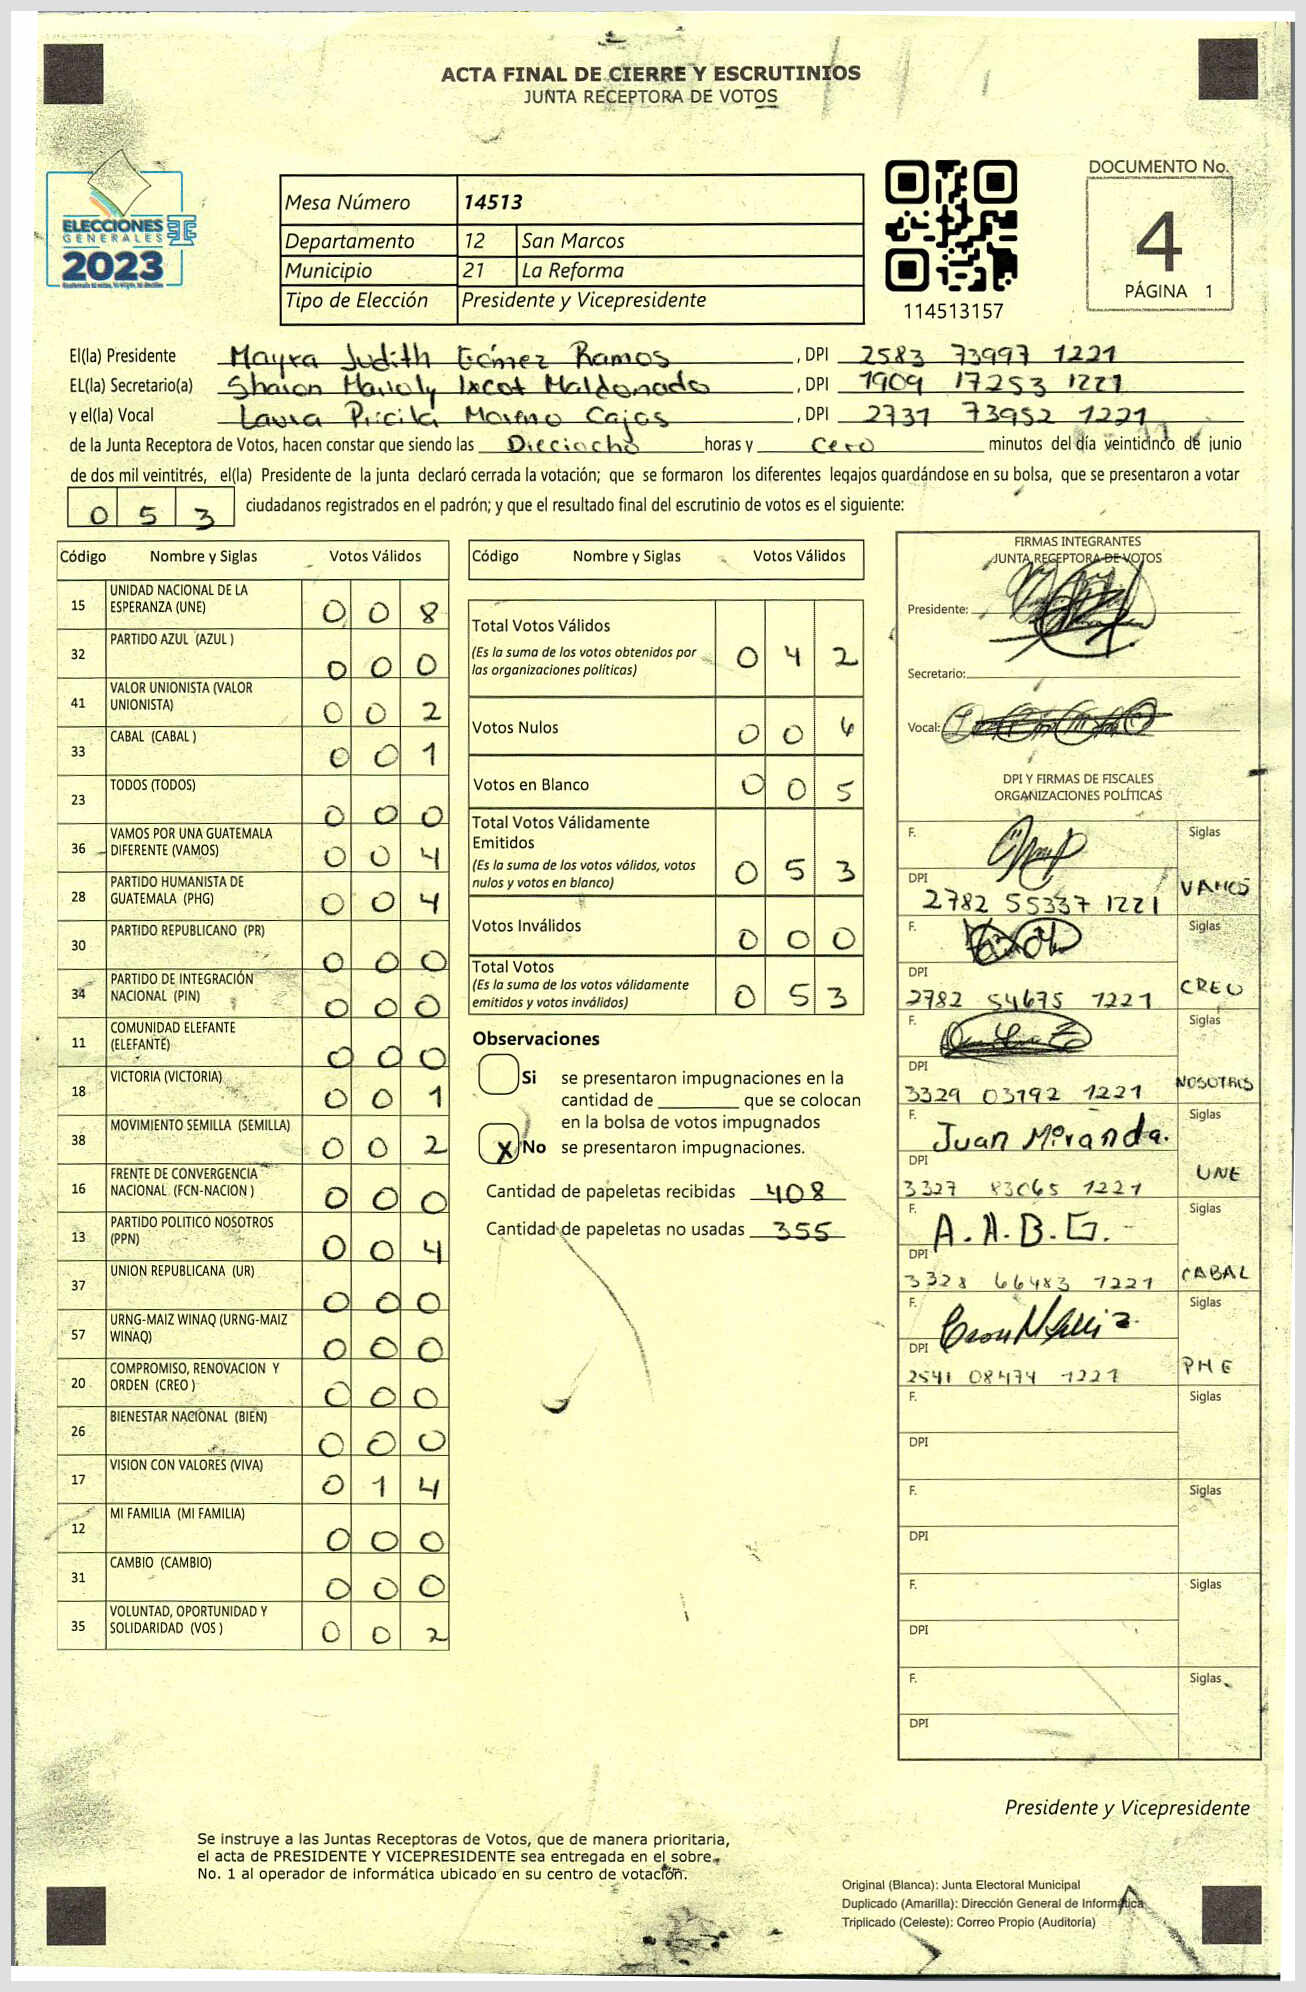 ACTA FINAL DE CIERRE Y ESCRUTINIOS
JUNTA RECEPTORA DE VOTOS
ELECCIONES
GENERALES
2023
Mesa Número 14513
Departamento 12 San Marcos
Municipio 21 La Reforma
Tipo de Elección Presidente y Vicepresidente
114513157
DOCUMENTO No.
4
PÁGINA 1
El(la) Presidente Mayra Judith Gómez Ramos, DPI 2583 73997 1221
EL(la) Secretario(a) Sharon Maholy Ixcot Maldonado, DPI 1909 17253 1221
y el(la) Vocal Laura Pricila Moreno Cajas, DPI 2731 73952 1221
de la Junta Receptora de Votos, hacen constar que siendo las Dieciocho horas y cero minutos del día veinticinco de junio
de dos mil veintitrés, el(la) Presidente de la junta declaró cerrada la votación; que se formaron los diferentes legajos guardándose en su bolsa, que se presentaron a votar
0 5 3 ciudadanos registrados en el padrón; y que el resultado final del escrutinio de votos es el siguiente:
Código Nombre y Siglas Votos Válidos
15 UNIDAD NACIONAL DE LA ESPERANZA (UNE) 0 0 8
32 PARTIDO AZUL (AZUL ) 0 0 0
41 VALOR UNIONISTA (VALOR UNIONISTA) 0 0 2
33 CABAL (CABAL ) 0 0 1
23 TODOS (TODOS) 0 0 0
36 VAMOS POR UNA GUATEMALA DIFERENTE (VAMOS) 0 0 4
28 PARTIDO HUMANISTA DE GUATEMALA (PHG) 0 0 4
30 PARTIDO REPUBLICANO (PR) 0 0 0
34 PARTIDO DE INTEGRACIÓN NACIONAL (PIN) 0 0 0
11 COMUNIDAD ELEFANTE (ELEFANTE) 0 0 0
18 VICTORIA (VICTORIA) 0 0 1
38 MOVIMIENTO SEMILLA (SEMILLA) 0 0 2
16 FRENTE DE CONVERGENCIA NACIONAL (FCN-NACION ) 0 0 0
13 PARTIDO POLITICO NOSOTROS (PPN) 0 0 4
37 UNION REPUBLICANA (UR) 0 0 0
57 URNG-MAIZ WINAQ (URNG-MAIZ WINAQ) 0 0 0
20 COMPROMISO, RENOVACION Y ORDEN (CREO ) 0 0 0
26 BIENESTAR NACIONAL (BIEN) 0 0 0
17 VISION CON VALORES (VIVA) 0 1 4
12 MI FAMILIA (MI FAMILIA) 0 0 0
31 CAMBIO (CAMBIO) 0 0 0
35 VOLUNTAD, OPORTUNIDAD Y SOLIDARIDAD (VOS ) 0 0 2
Código Nombre y Siglas Votos Válidos
Total Votos Válidos 0 4 2
(Es la suma de los votos obtenidos por
las organizaciones políticas)
Votos Nulos 0 0 6
Votos en Blanco 0 0 5
Total Votos Válidamente
Emitidos 0 5 3
(Es la suma de los votos válidos, votos
nulos y votos en blanco)
Votos Inválidos 0 0 0
Total Votos 0 5 3
(Es la suma de los votos válidamente
emitidos y votos inválidos)
Observaciones
Si se presentaron impugnaciones en la
cantidad de ________ que se colocan
en la bolsa de votos impugnados
X No se presentaron impugnaciones.
Cantidad de papeletas recibidas 408
Cantidad de papeletas no usadas 355
FIRMAS INTEGRANTES
JUNTA RECEPTORA DE VOTOS
Presidente:
Secretario:
Vocal:
DPI Y FIRMAS DE FISCALES
ORGANIZACIONES POLÍTICAS
F. Siglas
DPI 2782 55337 1221 VAMOS
F. Siglas
DPI 2782 54675 1221 CREO
F. Siglas
DPI 3329 03192 1221 NOSOTROS
F. Juan Miranda. Siglas
DPI 3327 83065 1221 UNE
F. A.A.B.G. Siglas
DPI 3328 66483 1221 CABAL
F. Siglas
DPI 2541 08474 1221 PHE
F. Siglas
DPI
F. Siglas
DPI
F. Siglas
DPI
F. Siglas
DPI
Presidente y Vicepresidente
Se instruye a las Juntas Receptoras de Votos, que de manera prioritaria,
el acta de PRESIDENTE Y VICEPRESIDENTE sea entregada en el sobre
No. 1 al operador de informática ubicado en su centro de votación.
Original (Blanca): Junta Electoral Municipal
Duplicado (Amarilla): Dirección General de Informática
Triplicado (Celeste): Correo Propio (Auditoría)